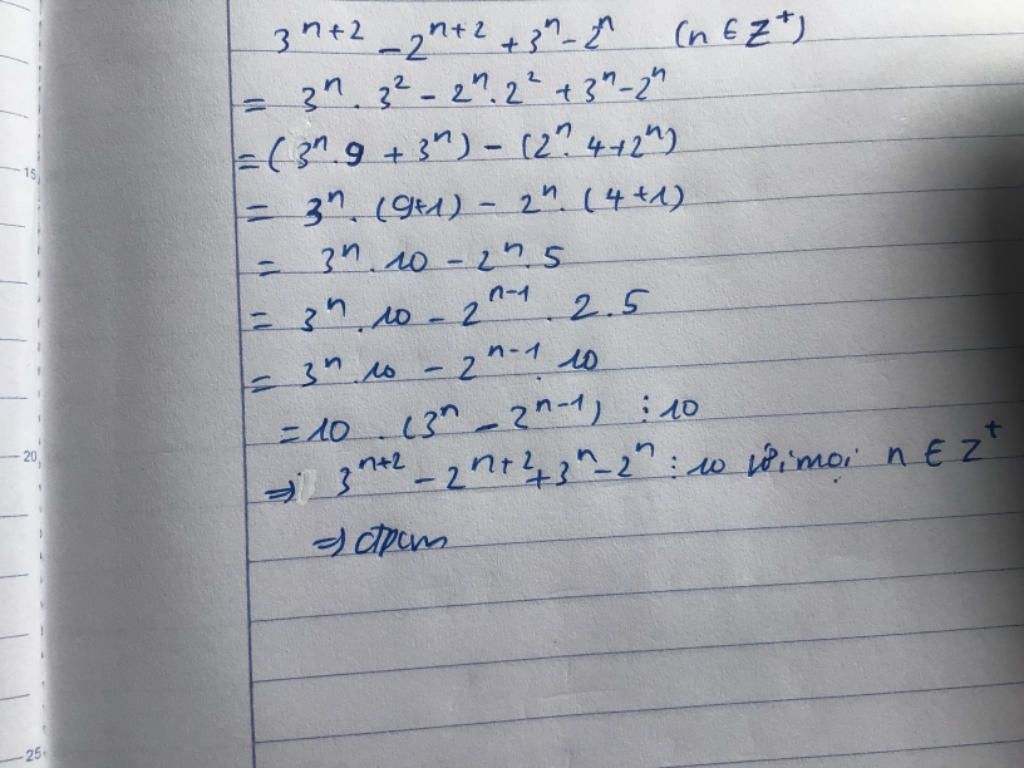 3^{n+2} - 2^{n+2} + 3^n - 2^n (n ∈ Z^+)
= 3^n . 3^2 - 2^n . 2^2 + 3^n - 2^n
= (3^n . 9 + 3^n) - (2^n . 4 + 2^n)
15
= 3^n . (9+1) - 2^n . (4+1)
= 3^n . 10 - 2^n . 5
= 3^n . 10 - 2^{n-1} . 2 . 5
= 3^n . 10 - 2^{n-1} . 10
= 10 . (3^n - 2^{n-1}) ⋮ 10
20
⇒ 3^{n+2} - 2^{n+2} + 3^n - 2^n ⋮ 10 với mọi n ∈ Z^+
⇒ đpcm
25